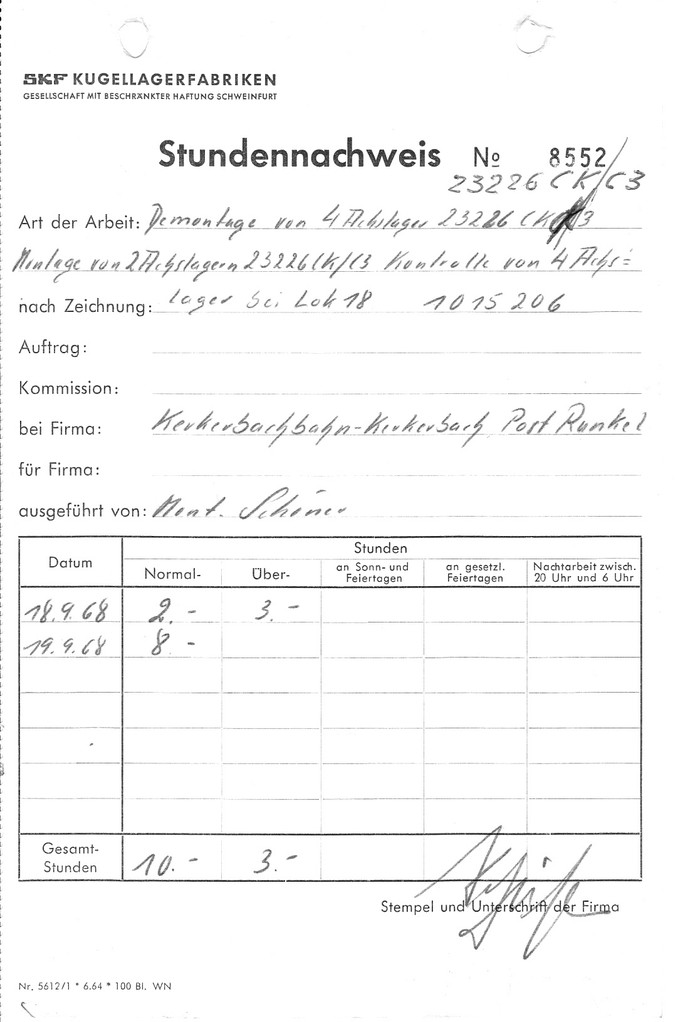 SKF KUGELLAGERFABRIKEN
GESELLSCHAFT MIT BESCHRÄNKTER HAFTUNG SCHWEINFURT
Stundennachweis No 8552
23226 CK/C3
Art der Arbeit: Demontage von 4 Achslager 23226 CK C3
Montage von 2 Achslagern 23226 CK/C3 Kontrolle von 4 Achs=
nach Zeichnung: lager bei Lok 18 1015206
Auftrag:
Kommission:
bei Firma: Kerkerbachbahn-Kerkerbach Post Runkel
für Firma:
ausgeführt von: Mont. Schöner
Datum Stunden
Normal- Über- an Sonn- und Feiertagen an gesetzl. Feiertagen Nachtarbeit zwisch. 20 Uhr und 6 Uhr
18.9.68 2.- 3.-
19.9.68 8 -
Gesamt-Stunden 10.- 3.-
Stempel und Unterschrift der Firma
Nr. 5612/1 * 6.64 * 100 Bl. WN